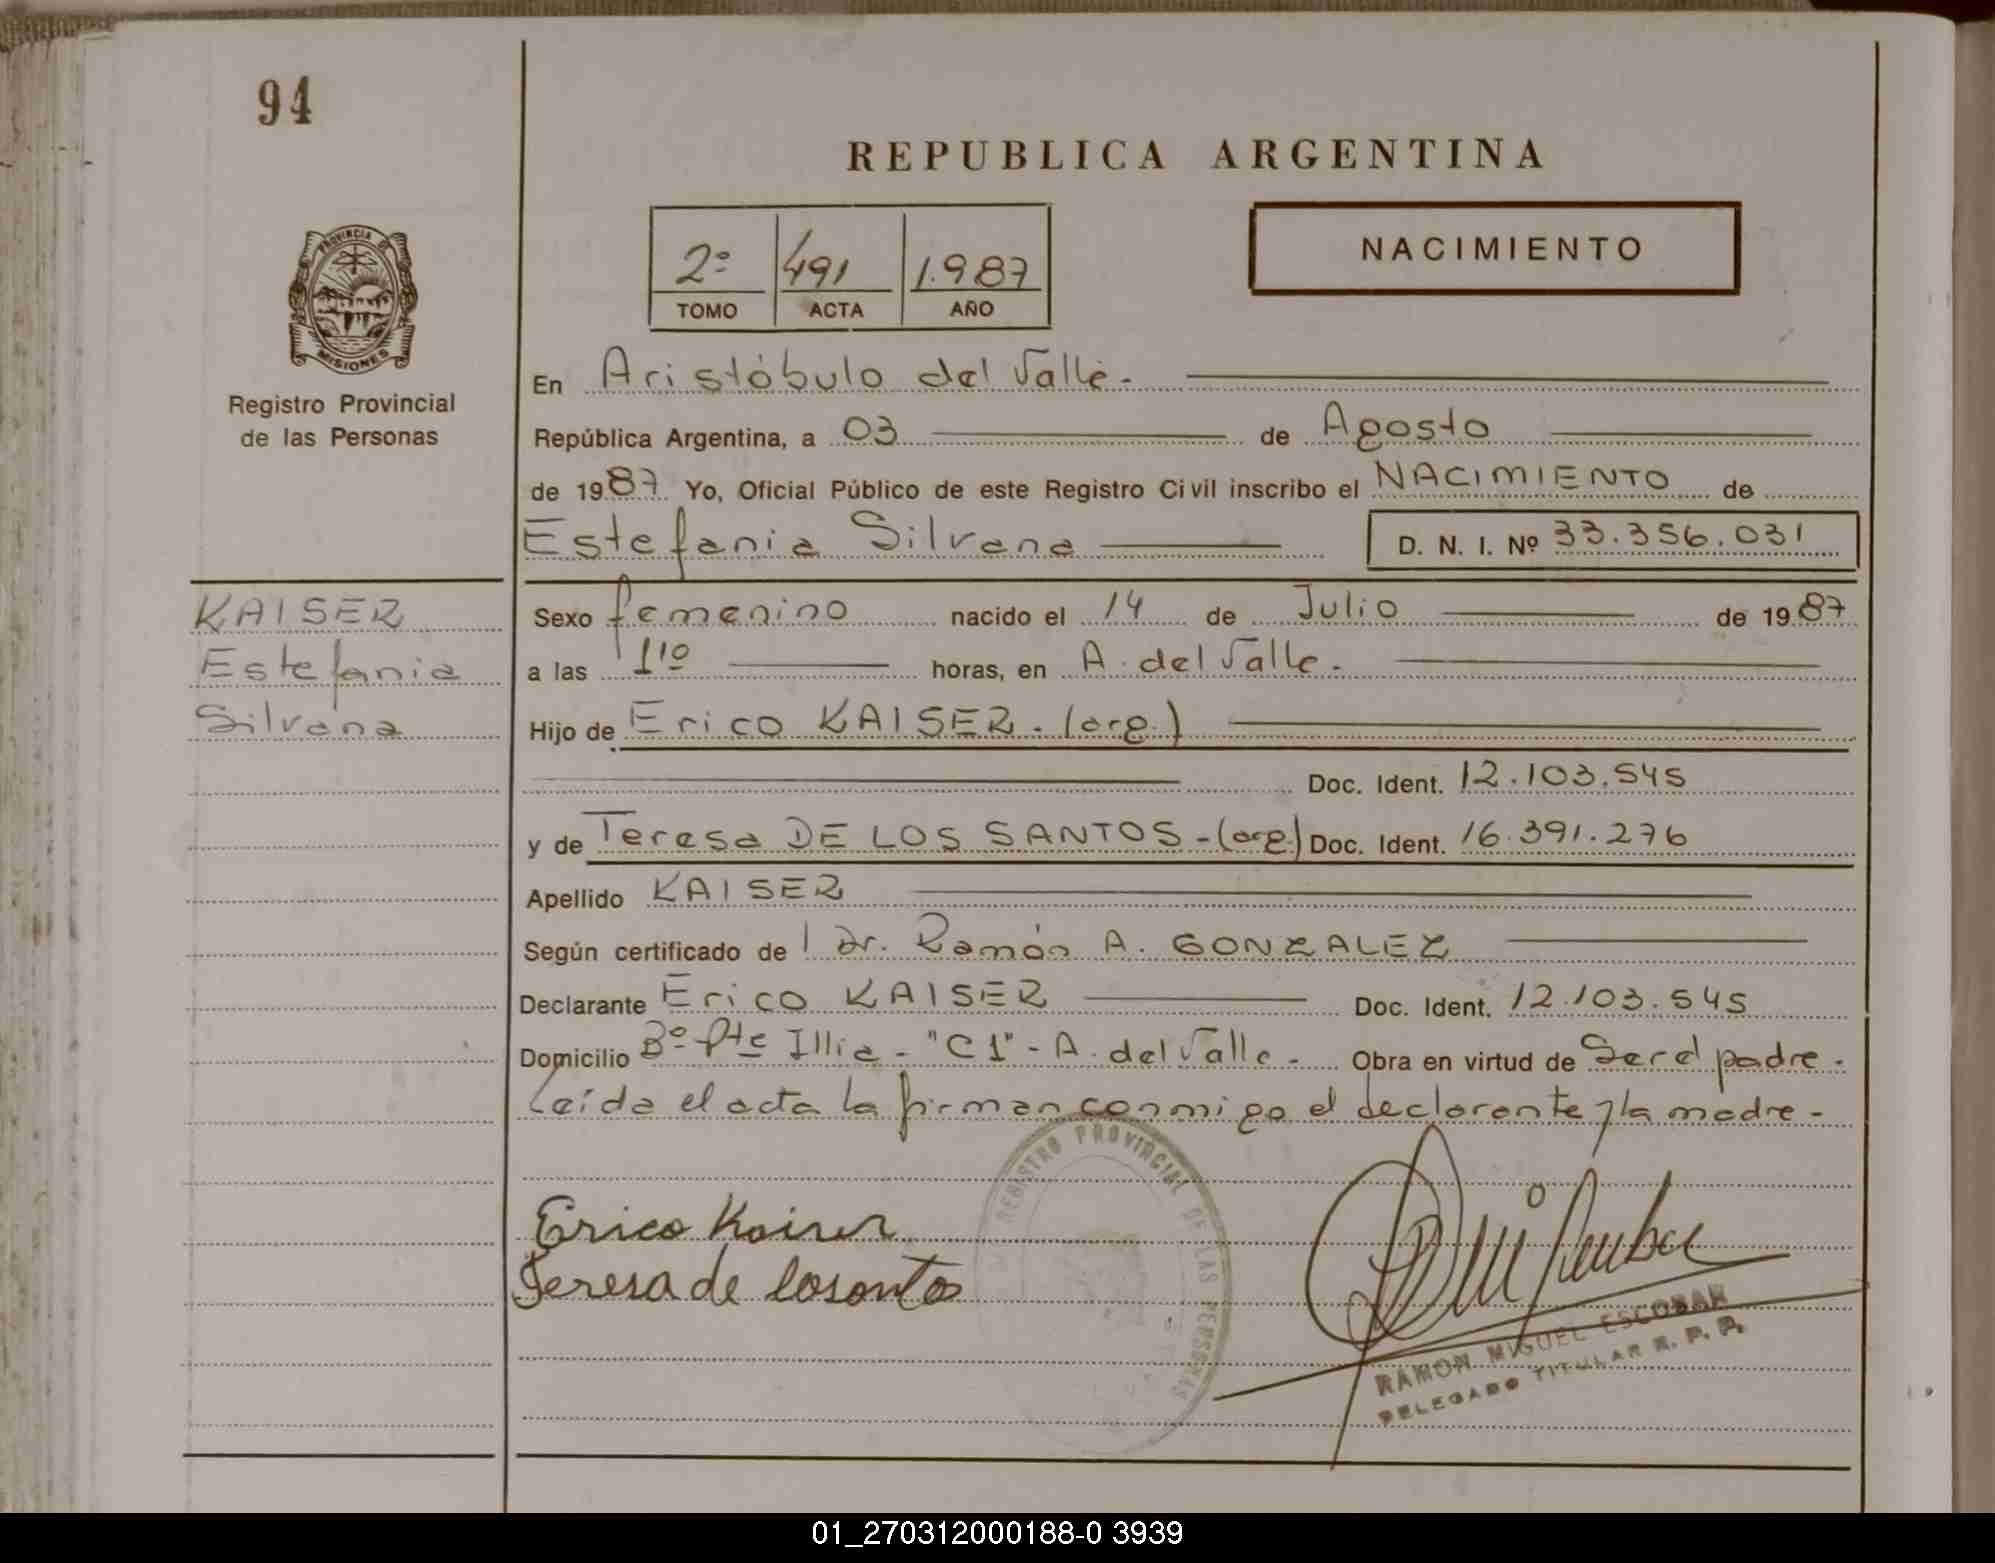 94
REPUBLICA ARGENTINA
PROVINCIA DE
MISIONES
Registro Provincial
de las Personas
2º 491 1.987
TOMO ACTA AÑO
NACIMIENTO
En Aristóbulo del Valle.-
República Argentina, a 03 de Agosto
de 1987 Yo, Oficial Público de este Registro Civil inscribo el NACIMIENTO de
Estefania Silvana D. N. I. Nº 33.356.031
KAISER
Estefania
Silvana
Sexo femenino nacido el 14 de Julio de 1987
a las 1 1º horas, en A. del Valle.-
Hijo de Erico KAISER. (arg.)
Doc. Ident. 12.103.545
y de Teresa DE LOS SANTOS-(arg.) Doc. Ident. 16.391.276
Apellido KAISER
Según certificado de l Dr. Ramón A. GONZALEZ
Declarante Erico KAISER Doc. Ident. 12.103.545
Domicilio Bº Pte Illia - "C1" - A. del Valle - Obra en virtud de Ser el padre.
Leída el acta la firman conmigo el declarante y la madre -
REGISTRO PROVINCIAL DE LAS PERSONAS
Erico Kaiser
Teresa de losanto
RAMON MIGUEL ESCOBAR
DELEGADO TITULAR R. P. P.
01_270312000188-0 3939